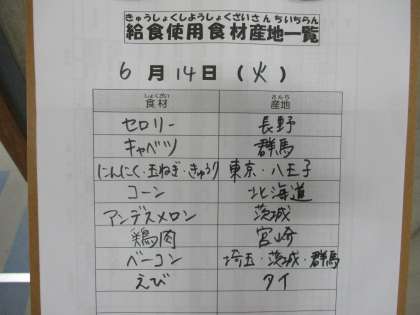 きゅうしょくしようしょくざいさんちいちらん
給食使用食材産地一覧
6月14日(火)
しょくざい さんち
食材 産地
セロリー 長野
キャベツ 群馬
にんにく・玉ねぎ・きゅうり 東京・八王子
コーン 北海道
アンデスメロン 茨城
鶏肉 宮崎
ベーコン 埼玉・茨城・群馬
えび タイ